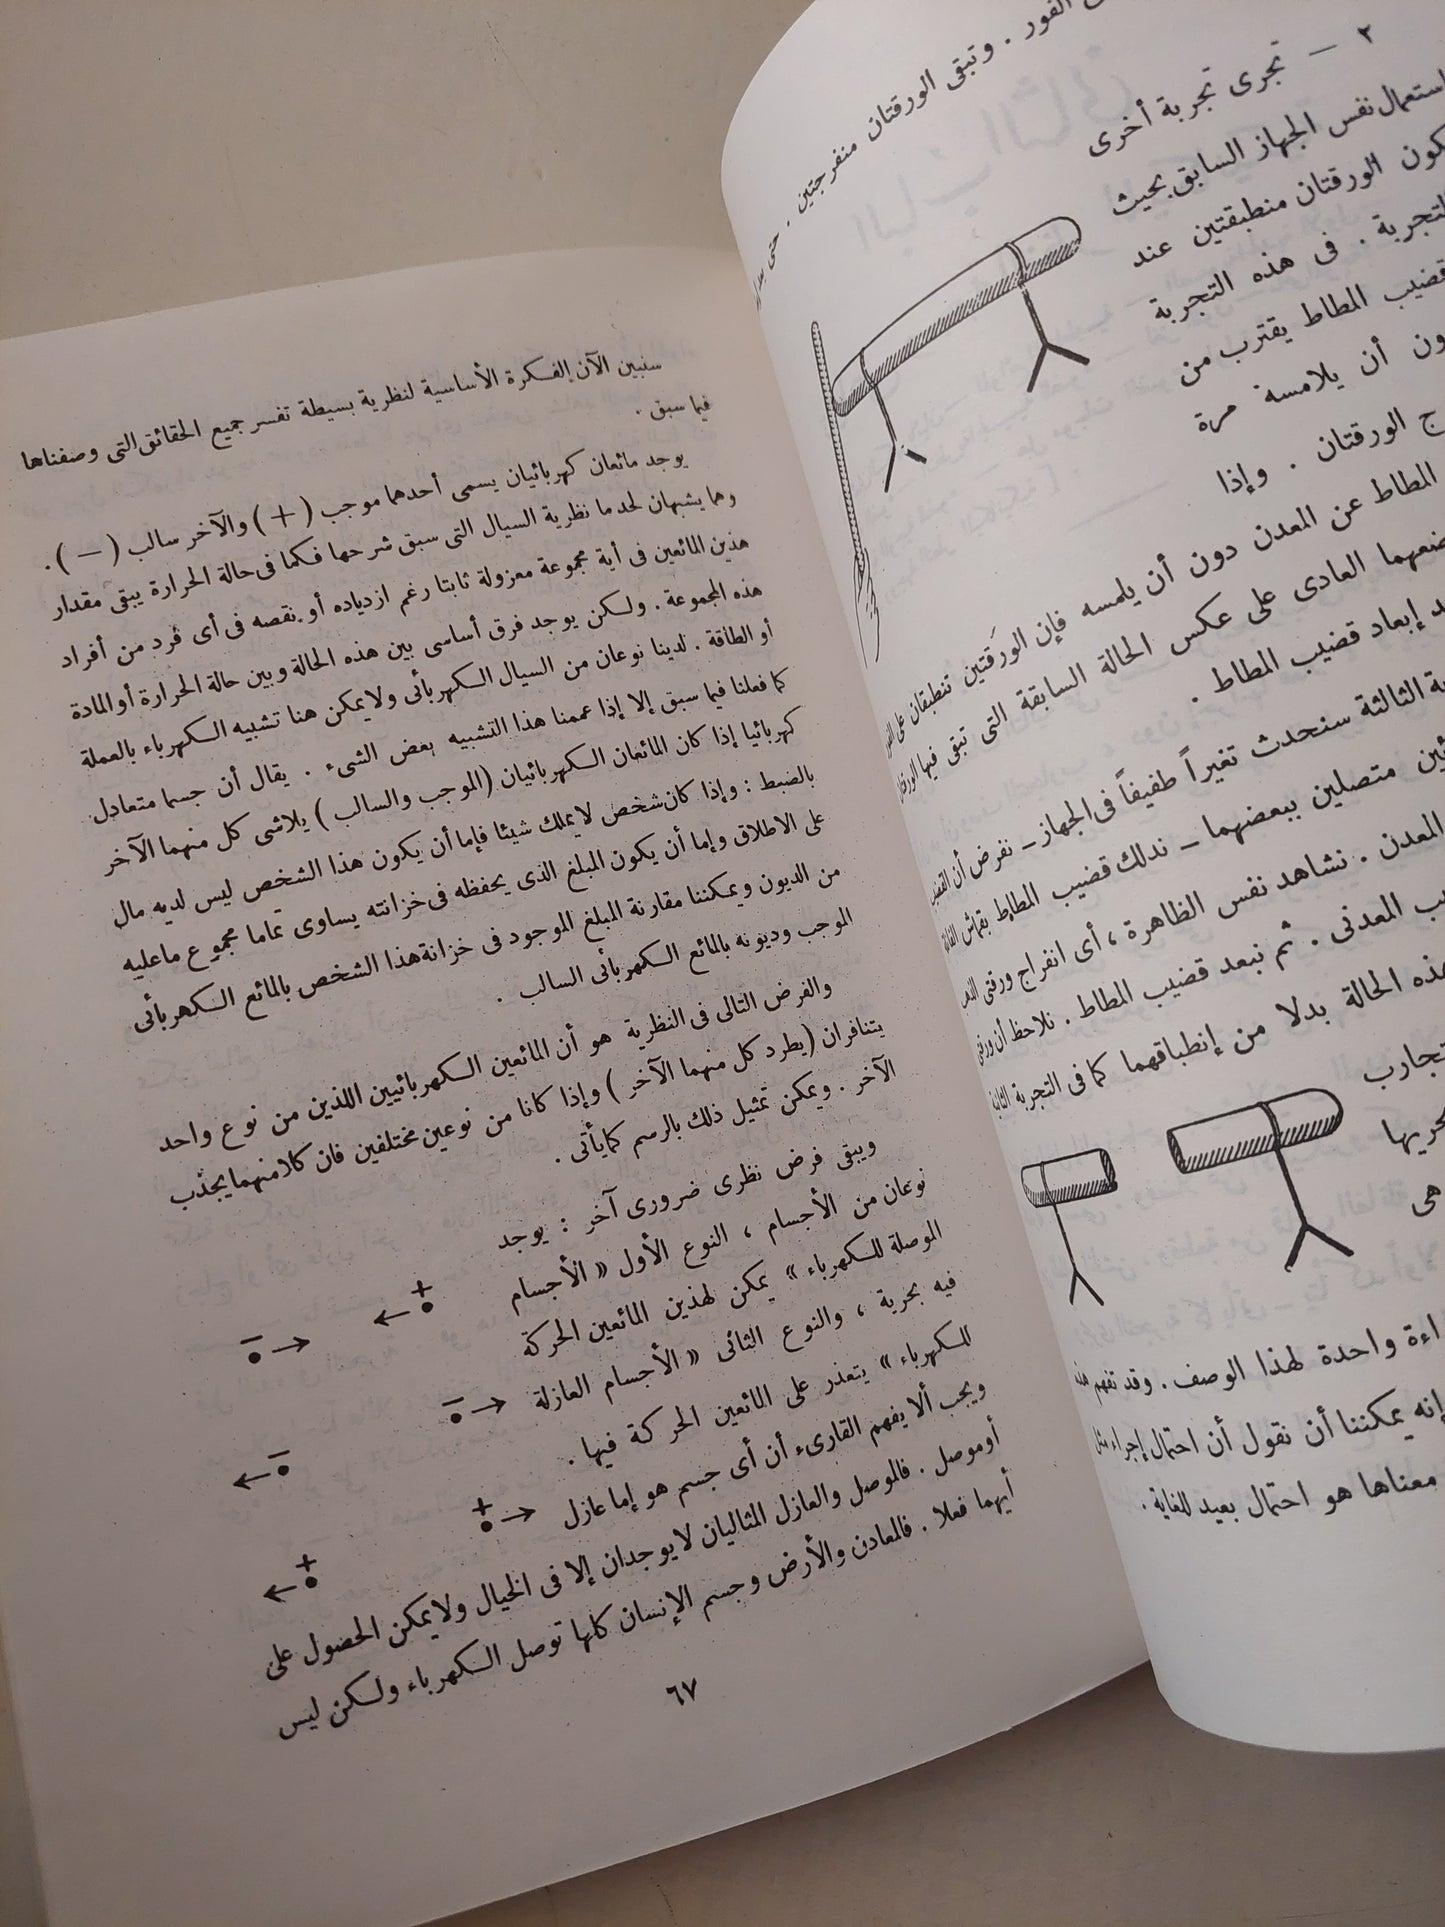 الفور . وتبقى الورقتان منفرجتين . حتى بعد
٢ — تجرى تجربة أخرى
استعمال نفس الجهاز السابق بحيث
كون الورقتان منطبقتين عند
التجربة . فى هذه التجربة
قضيب المطاط يقترب من
ون أن يلامسة مرة
ج الورقتان . وإذا
المطاط عن المعدن دون أن يلمسه فإن الورقتين تنطبقان على الفور
ضعهما العادى على عكس الحالة السابقة التى تبقى فيها الورقتان
د إبعاد قضيب المطاط .
ة الثالثة سنحدث تغيراً طفيفاً فى الجهاز — نفرض أن القضيب
ئين متصلين ببعضهما — ندلك قضيب المطاط بقماش الفانلة
المعدن . نشاهد نفس الظاهرة ، أى انفراج ورقتى الذهب
ب المعدنى . ثم نبعد قضيب المطاط . نلاحظ أن ورقتى
هذه الحالة بدلا من إنطباقهما كما فى التجربة الثانية
تجارب
نجريها
هى
اءة واحدة لهذا الوصف . وقد تفهم هذه
إنه يمكننا أن نقول أن احتمال إجراء مثل
معناها هو احتمال بعيد للغاية .
سنبين الآن الفكرة الأساسية لنظرية بسيطة تفسر جميع الحقائق التى وصفناها
فيما سبق .
يوجد مائعان كهربائيان يسمى أحدهما موجب ( + ) والآخر سالب ( — ) .
وهما يشبهان لحدما نظرية السيال التى سبق شرحها فكما فى حالة الحرارة يبقى مقدار
هذين المائعين فى أية مجموعة معزولة ثابتا رغم ازدياده أو نقصه فى أى فرد من أفراد
هذه المجموعة . ولكن يوجد فرق أساسى بين هذه الحالة وبين حالة الحرارة أو المادة
أو الطاقة . لدينا نوعان من السيال الكهربائى ولا يمكن هنا تشبيه الكهرباء بالعملة
كما فعلنا فيما سبق إلا إذا عممنا هذا التشبيه بعض الشىء . يقال أن جسما متعادل
كهربائيا إذا كان المائعان الكهربائيان ( الموجب والسالب ) يلاشى كل منهما الآخر
بالضبط : وإذا كان شخص لا يملك شيئا فإما أن يكون هذا الشخص ليس لديه مال
على الاطلاق وإما أن يكون المبلغ الذى يحفظه فى خزانته يساوى تماما مجموع ماعليه
من الديون ويمكننا مقارنة المبلغ الموجود فى خزانة هذا الشخص بالمائع الكهربائى
الموجب وديونه بالمائع الكهربائى السالب .
والفرض التالى فى النظرية هو أن المائعين الكهربائيين اللذين من نوع واحد
يتنافران ( يطرد كل منهما الآخر ) وإذا كانا من نوعين مختلفين فان كلا منهما يجذب
الآخر . ويمكن تمثيل ذلك بالرسم كما يأتى .
ويبقى فرض نظرى ضرورى آخر : يوجد
نوعان من الأجسام ، النوع الأول « الأجسام
الموصلة للكهرباء » يمكن لهذين المائعين الحركة
فيه بحرية ، والنوع الثانى « الأجسام العازلة
للكهرباء » يتعذر على المائعين الحركة فيها .
ويجب ألا يفهم القارىء أن أى جسم هو إما عازل
أو موصل . فالموصل والعازل المثاليان لا يوجدان إلا فى الخيال ولا يمكن الحصول على
أيهما فعلا . فالمعادن والأرض وجسم الإنسان كلها توصل الكهرباء ولكن ليس
٦٧